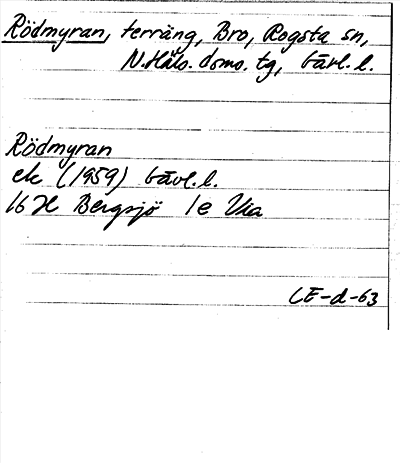 Rödmyran, terräng, Bro, Rogsta sn,
N. Häls. doms. tg, Gävl. l.
Rödmyran
ek (1959) Gävl. l.
16 H Bergsjö 1e
LE-d-63